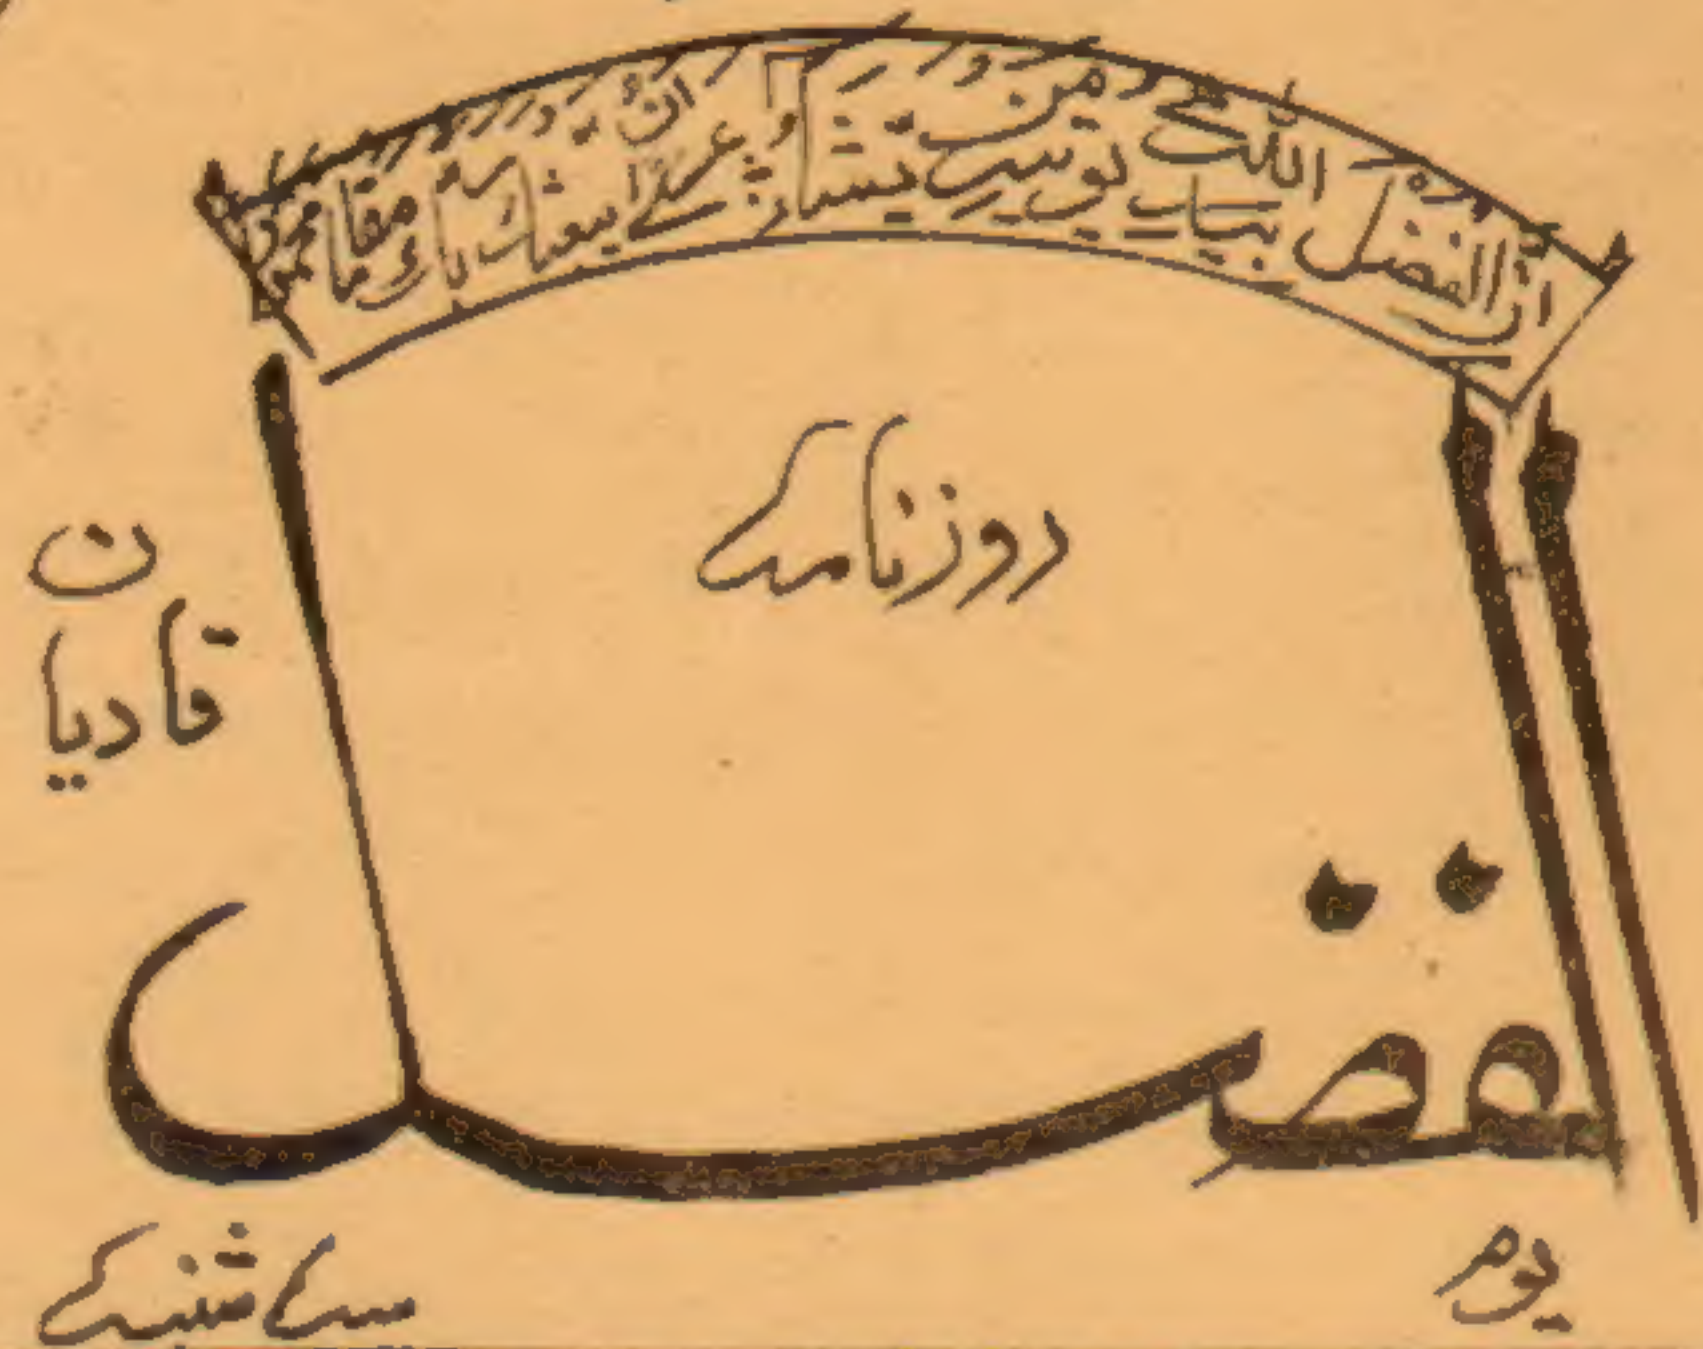 ان الفضل بید اللہ یؤتیہ من یشاء عسٰی ان یبعثک ربک مقاما محمودا
روزنامہ
قادیان
الفضل
یوم سہ شنبہ